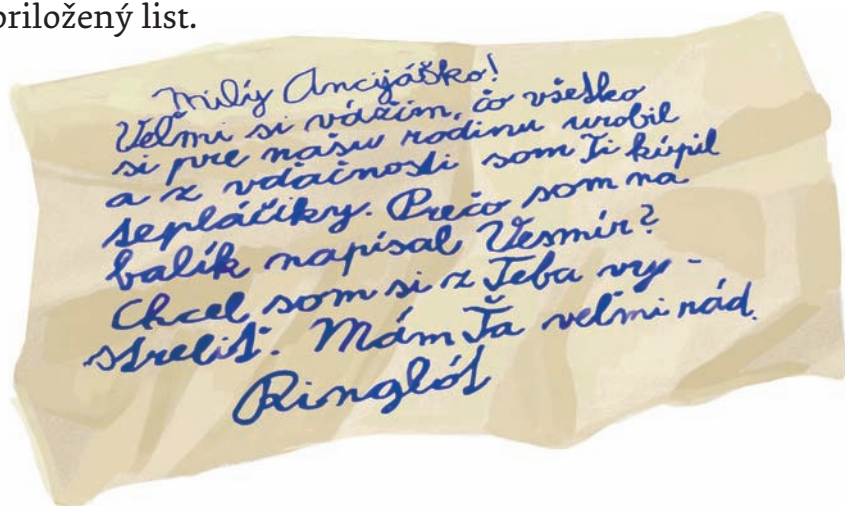 priložený list.
Milý Ancijáško!
Veľmi si vážim, čo všetko
si pre našu rodinu urobil
a z vďačnosti som Ti kúpil
tepláčiky. Prečo som na
balík napísal Vesmír?
Chcel som si z Teba vy-
streliť. Mám Ťa veľmi rád.
Ringlót